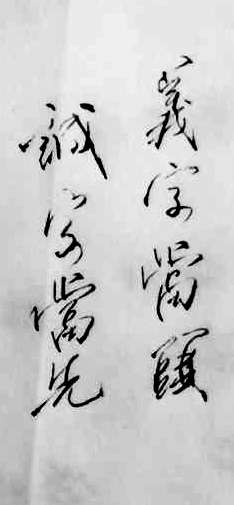 義字當頭
誠字當先